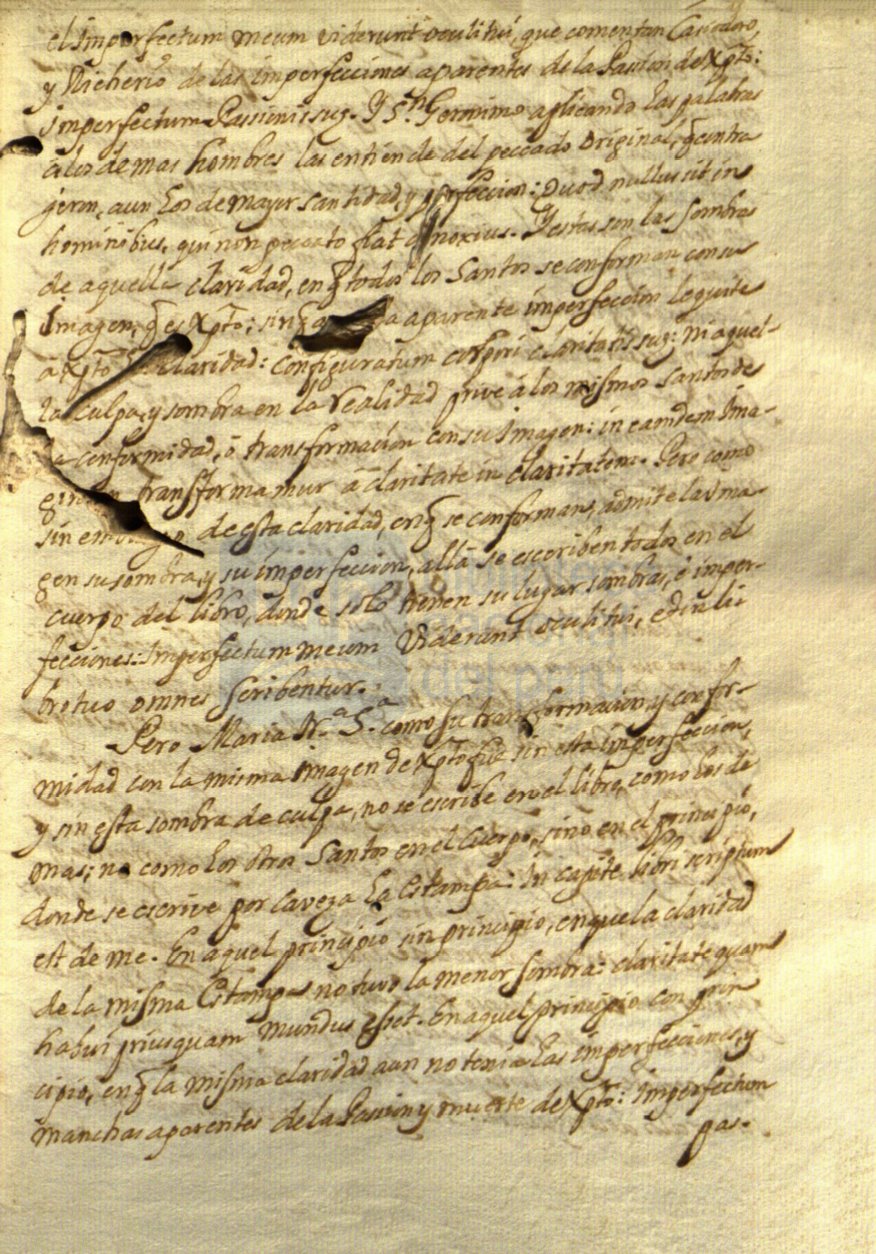 el imperfectum meum viderunt oculi tui, que comentan Casiodoro,
y Richerio de las imperfecciones aparentes de la Passion de Xpto:
imperfectum Passionis suę. Y Sn. Geronimo aplicando las palabras
a los demas hombres las entiende del peccado original, q contra
jeron, aun los de mayor santidad, y perfeccion: quod nullus sit in
hominibus, qui non peccato fiat obnoxius. Y estas son las sombras
de aquella claridad, en q todos los Santos se conforman con su
Imagen, q es Xpto; sin q a la aparente imperfeccion le quite
a Xpto claridad: configuratum corpori claritatis suę: ni aquel-
la culpa, y sombra en la realidad prive á los mismos santos de
la conformidad, ó transformacion con su Imagen: in eamdem Ima-
ginem transformamur á claritate in claritatem. Pero como
sin embargo de esta claridad, en q se conforman, admite la Ima-
gen su sombra, y su imperfeccion, allá se escriben todos en el
cuerpo del libro, donde solo tienen su lugar sombras, é imper-
fecciones: Imperfectum meum viderunt oculi tui, et in li
bro tuo omnes scribentur.
Pero Maria Nra. Sa. como su transformacion, y confor-
midad con la misma imagen de Xpto fue sin esta imperfeccion,
y sin esta sombra de culpa, no se escribe en el libro, como los de
mas; no como los otros Santos en el cuerpo, sino en el principio,
donde se escrive por caveza la Estampa: In capite libri scriptum
est de me. En aquel principio sin principio, en que la claridad
de la misma Estampa no tuvo la menor sombra: claritate quam
habui priusquam mundus esset. En aquel principio con prin
cipio, en q la misma claridad aun no tenia las imperfecciones, y
manchas aparentes de la Passion y muerte de Xpto: Imperfectum
pas-
Biblioteca
Nacional
del Perú